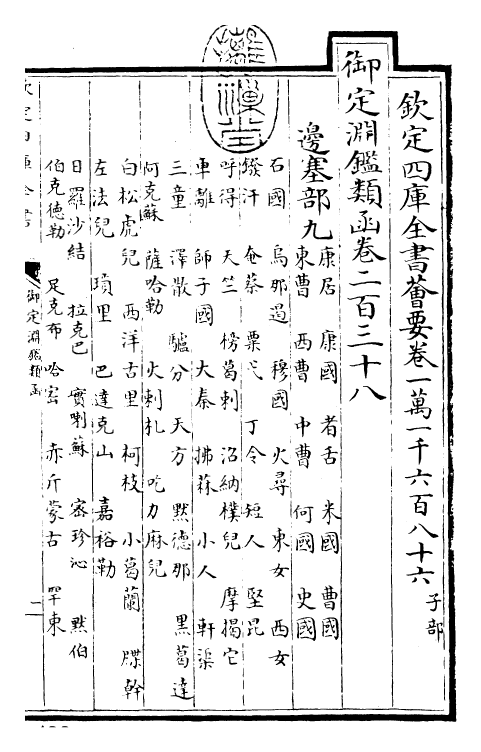 欽定四庫全書薈要卷一萬一千六百八十六 子部
御定淵鑑類函卷二百三十八
邊塞部九
康居 康國 者舌 米國 曹國
東曹 西曹 中曹 何國 史國
石國 烏那遏 穆國 火尋 東女 西女
鏺汗 奄蔡 粟弋 丁令 短人 堅昆
呼得 天竺 榜葛剌 沼納樸兒 摩揭它
車離 師子國 大秦 拂菻 小人 軒渠
三童 澤散 驢分 天方 黙德那 黒葛達
阿克蘇 薩哈勒 火剌札 吃力麻兒
白松虎兒 西洋古里 柯枝 小葛蘭 牒幹
左法兒 瑣里 巴達克山 嘉裕勒
日羅沙結 拉克巴 實喇蘇 密珍沁 黙伯
伯克德勒 足克布 哈宻 赤斤蒙古 罕東
欽定四庫全書
御定淵鑑類函